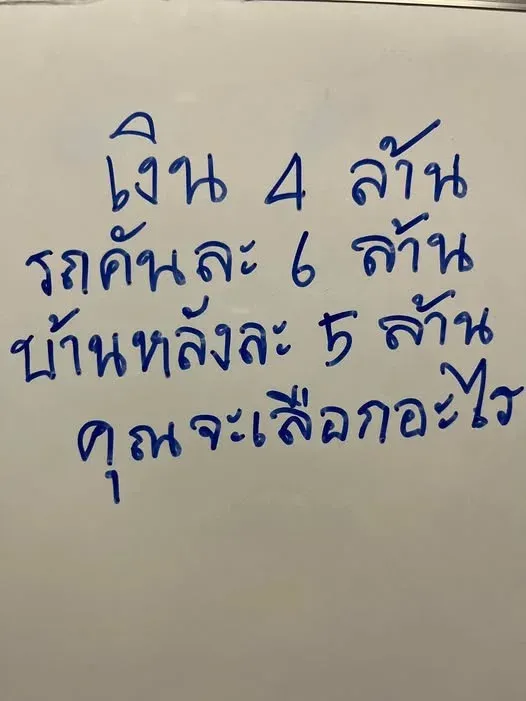 เงิน 4 ล้าน
รถคันละ 6 ล้าน
บ้านหลังละ 5 ล้าน
คุณจะเลือกอะไร